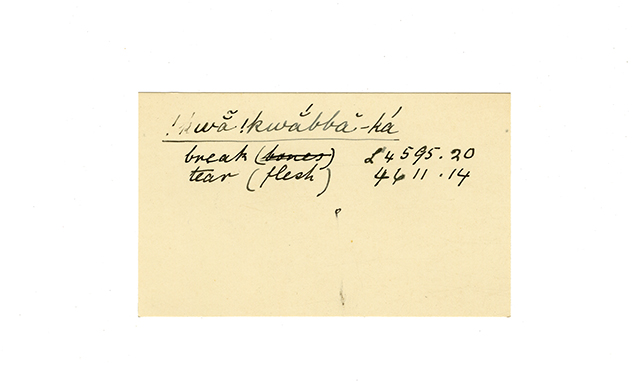 !kwã !kwábbã-ká
break (bones) L 4595.20
tear (flesh) 4611.14